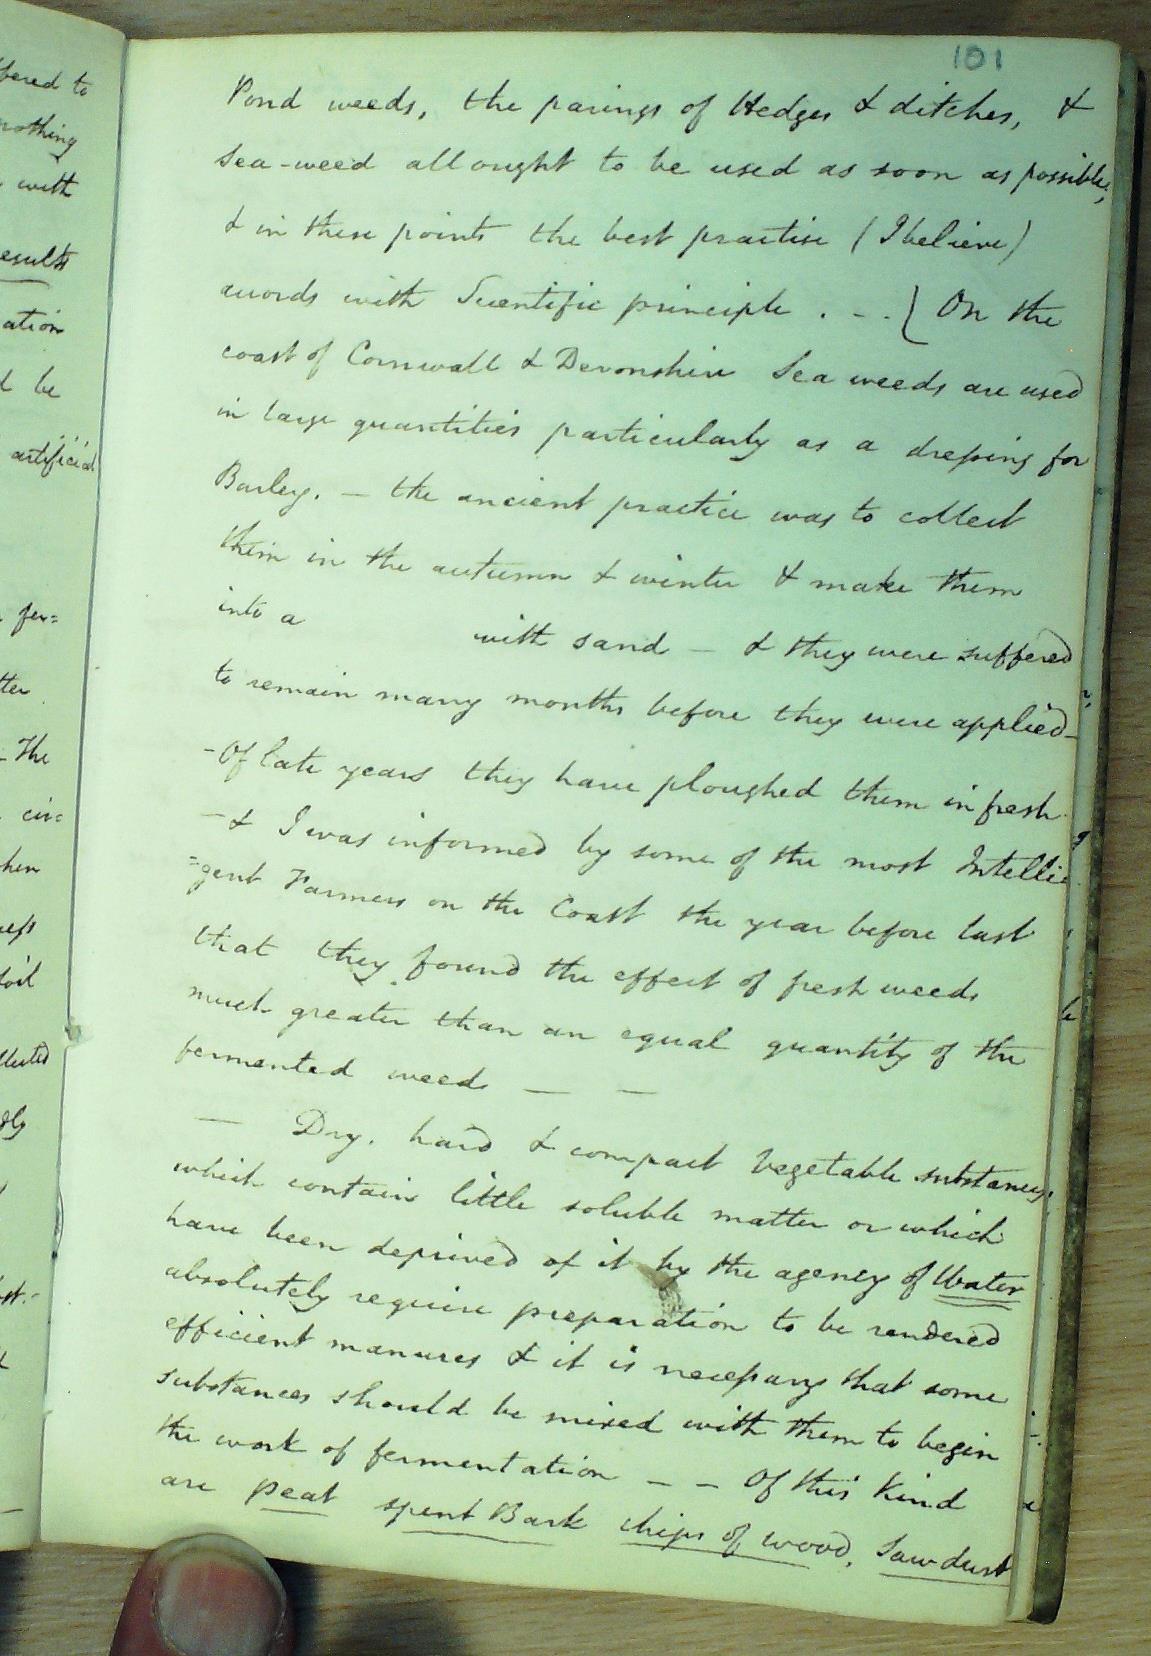 101
Pond weeds, the parings of Hedges & ditches, &
Sea-weed all ought to be used as soon as possible,
& in these points the best practise (I believe)
accords with Scientific principle . - . { On the
coast of Cornwall & Devonshire Sea weeds are used
in large quantities particularly as a dressing for
Barley. — the ancient practice was to collect
them in the autumn & winter & make them
into a with sand — & they were suffered
to remain many months before they were applied —
- Of late years they have ploughed them in fresh
- & I was informed by some of the most Intelli=
=gent Farmers on the Coast the year before last
that they found the effect of fresh weeds
much greater than an equal quantity of the
fermented weed — —
— Dry, hard & compact Vegetable substances,
which contain little soluble matter or which
have been deprived of it by the agency of Water
absolutely require preparation to be rendered
efficient manures & it is necessary that some
substances should be mixed with them to begin
the work of fermentation — — Of this Kind
are peat spent Bark chips of wood, Sawdust
fered to
nothing
with
esults
ation
be
artificial
fer=
The
cir=